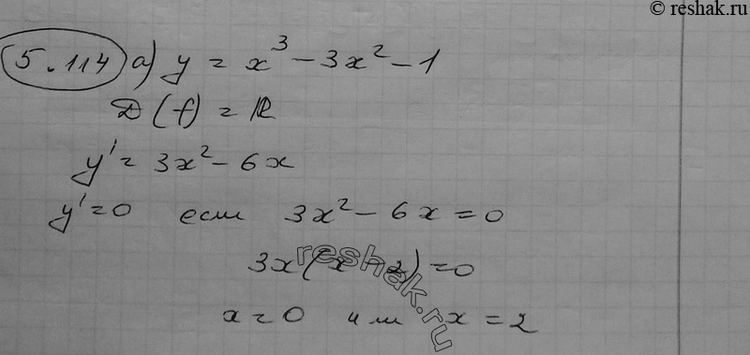 © reshak.ru
5.114 а) y = x³ - 3x² - 1
D(f) = ℝ
y' = 3x² - 6x
y' = 0 если 3x² - 6x = 0
3x(x - 2) = 0
x = 0 или x = 2
reshak.ru